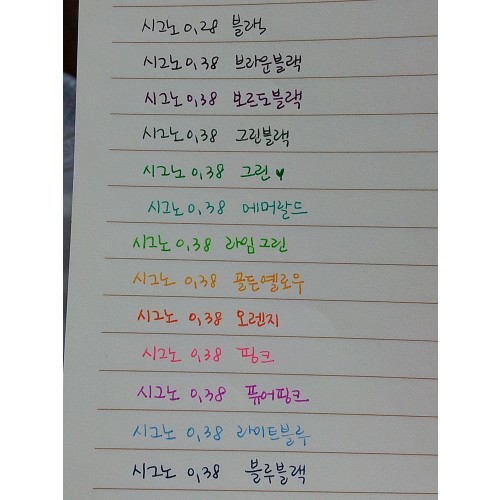 시그노 0.28 블랙
시그노 0.38 브라운블랙
시그노 0.38 보르도블랙
시그노 0.38 그린블랙
시그노 0.38 그린♥
시그노 0.38 에머랄드
시그노 0.38 라임그린
시그노 0.38 골든옐로우
시그노 0.38 오렌지
시그노 0.38 핑크
시그노 0.38 퓨어핑크
시그노 0.38 라이트블루
시그노 0.38 블루블랙